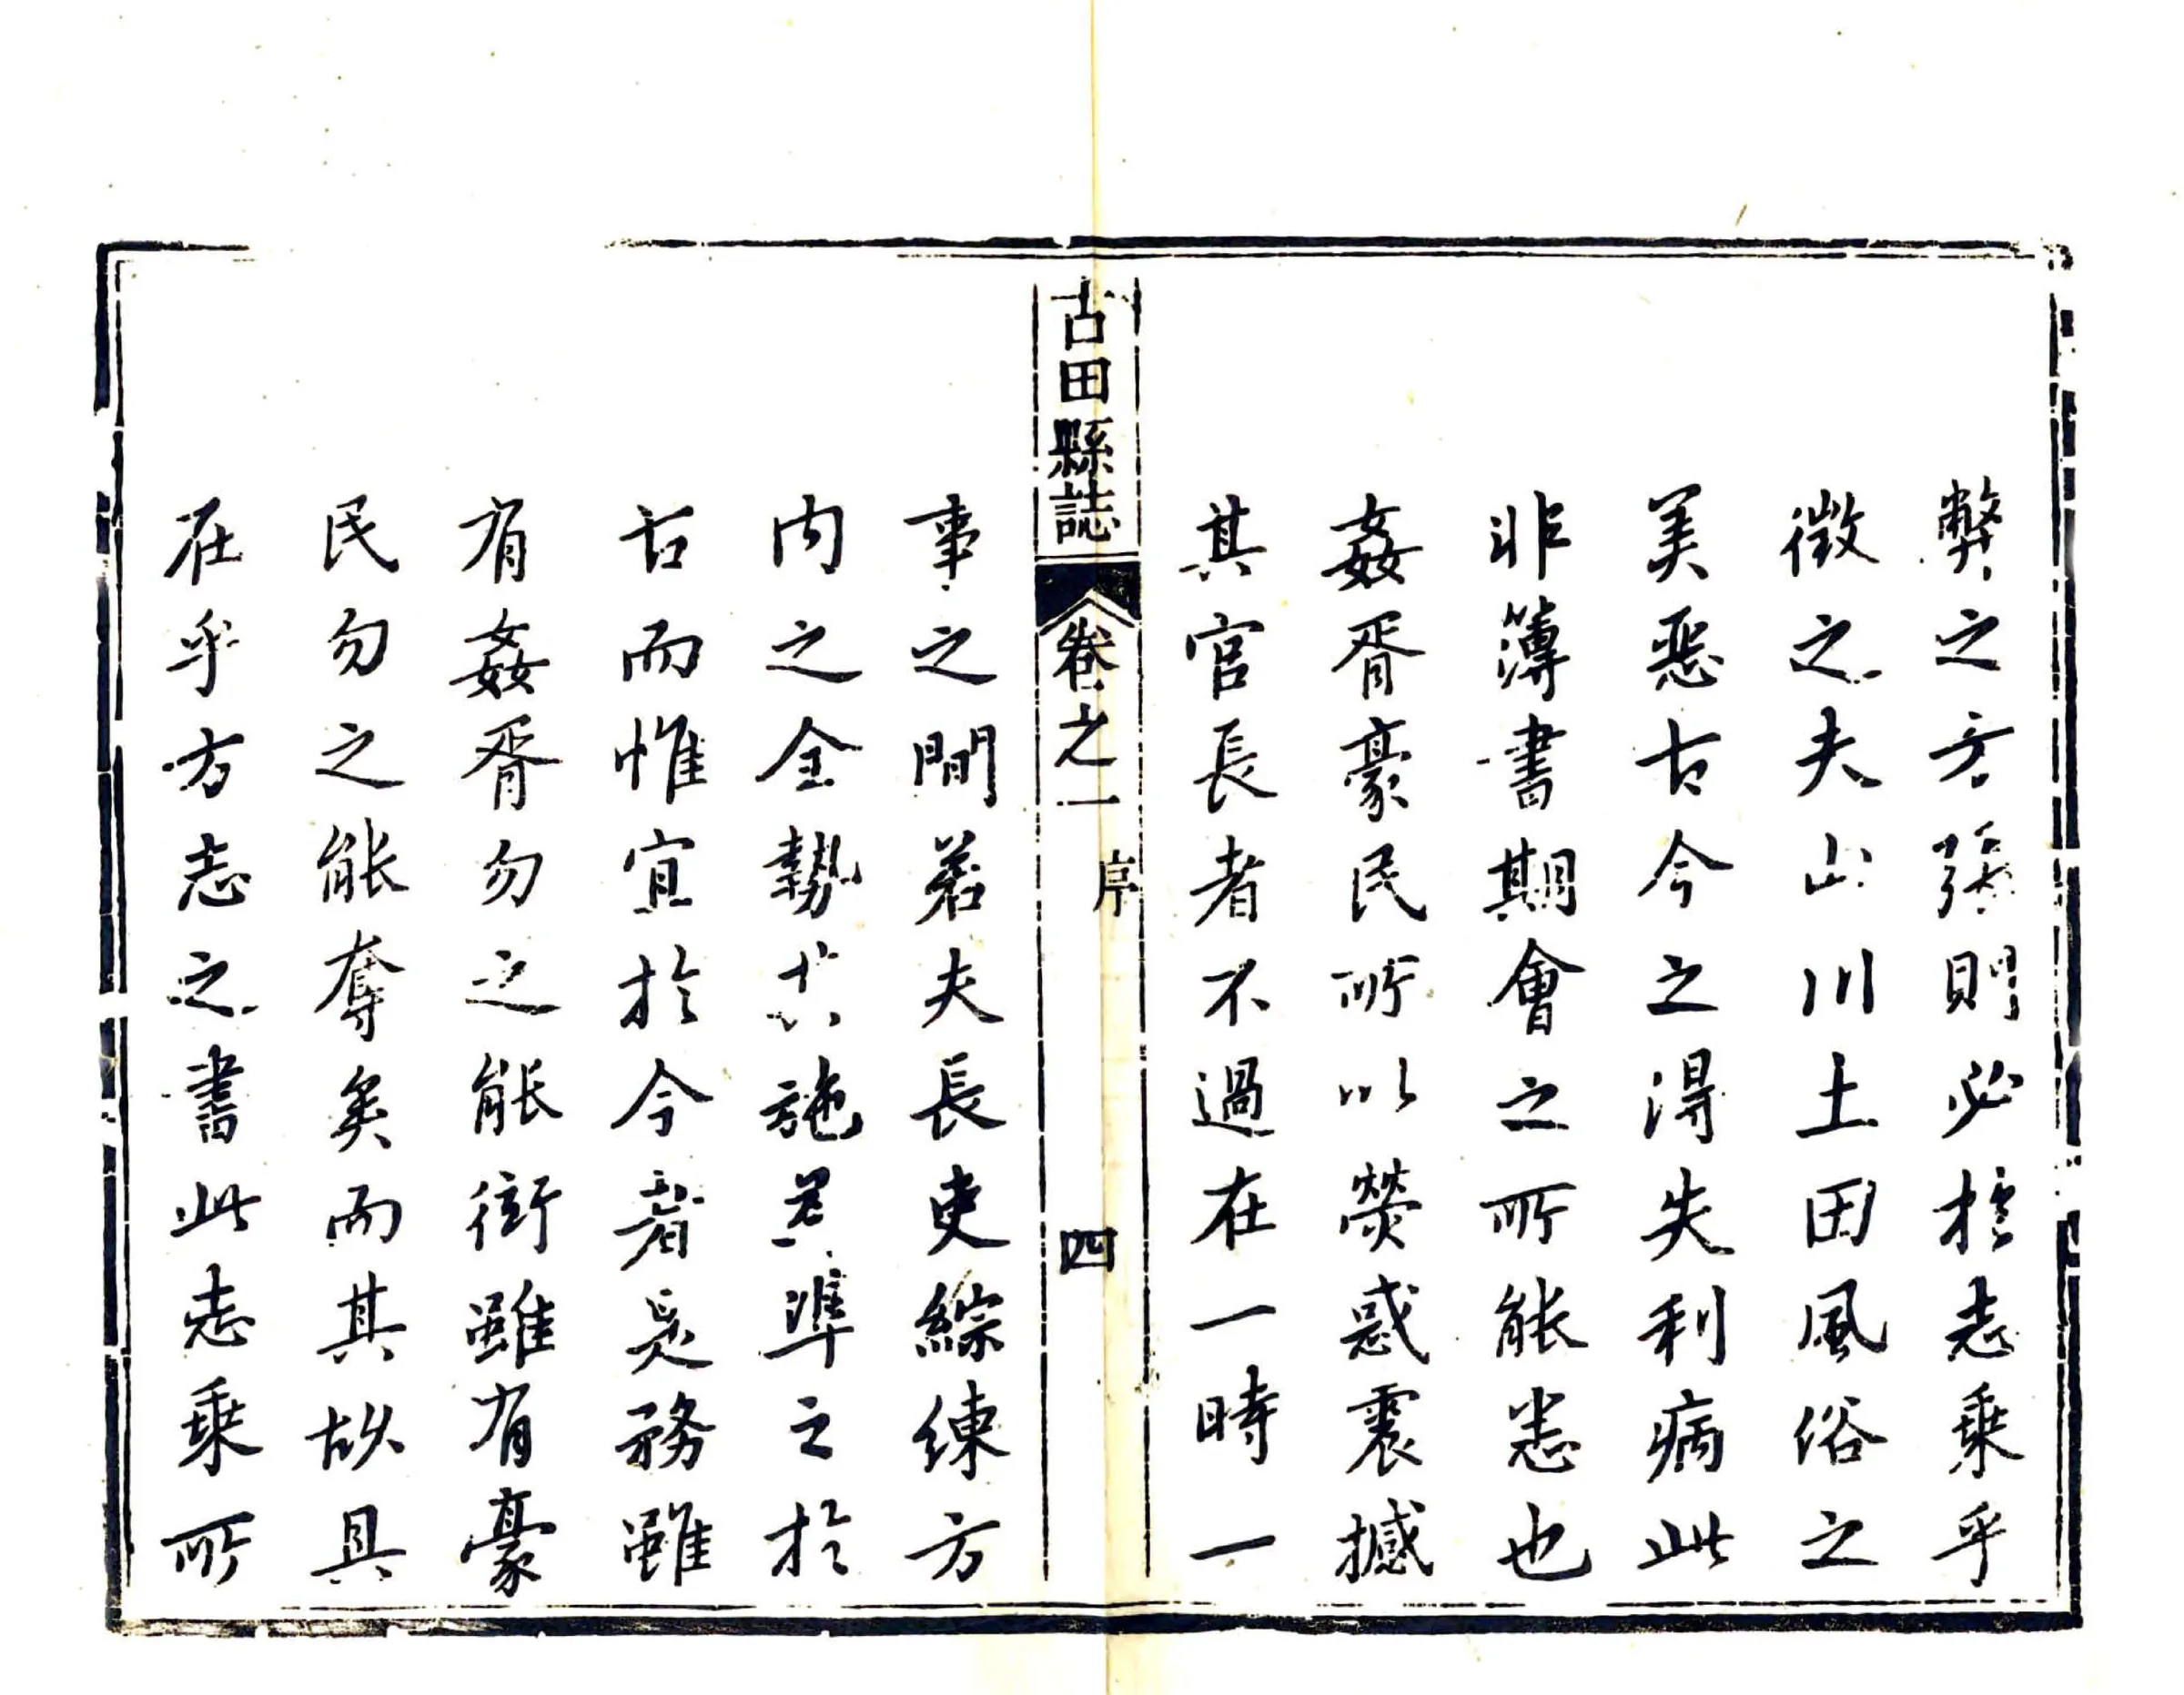 弊之方張則必於志乘乎
徵之夫山川土田風俗之
美惡古今之得失利病此
非簿書期會之所能悉也
姦胥豪民所以熒惑震撼
其官長者不過在一時一
古田縣誌 卷之一 序 四
事之間若夫長吏綜練方
内之全勢其施準之於
古而惟宜於今者是務雖
有姦胥勿之能衒雖有豪
民勿之能奪矣而其故具
在乎方志之書此志乘所